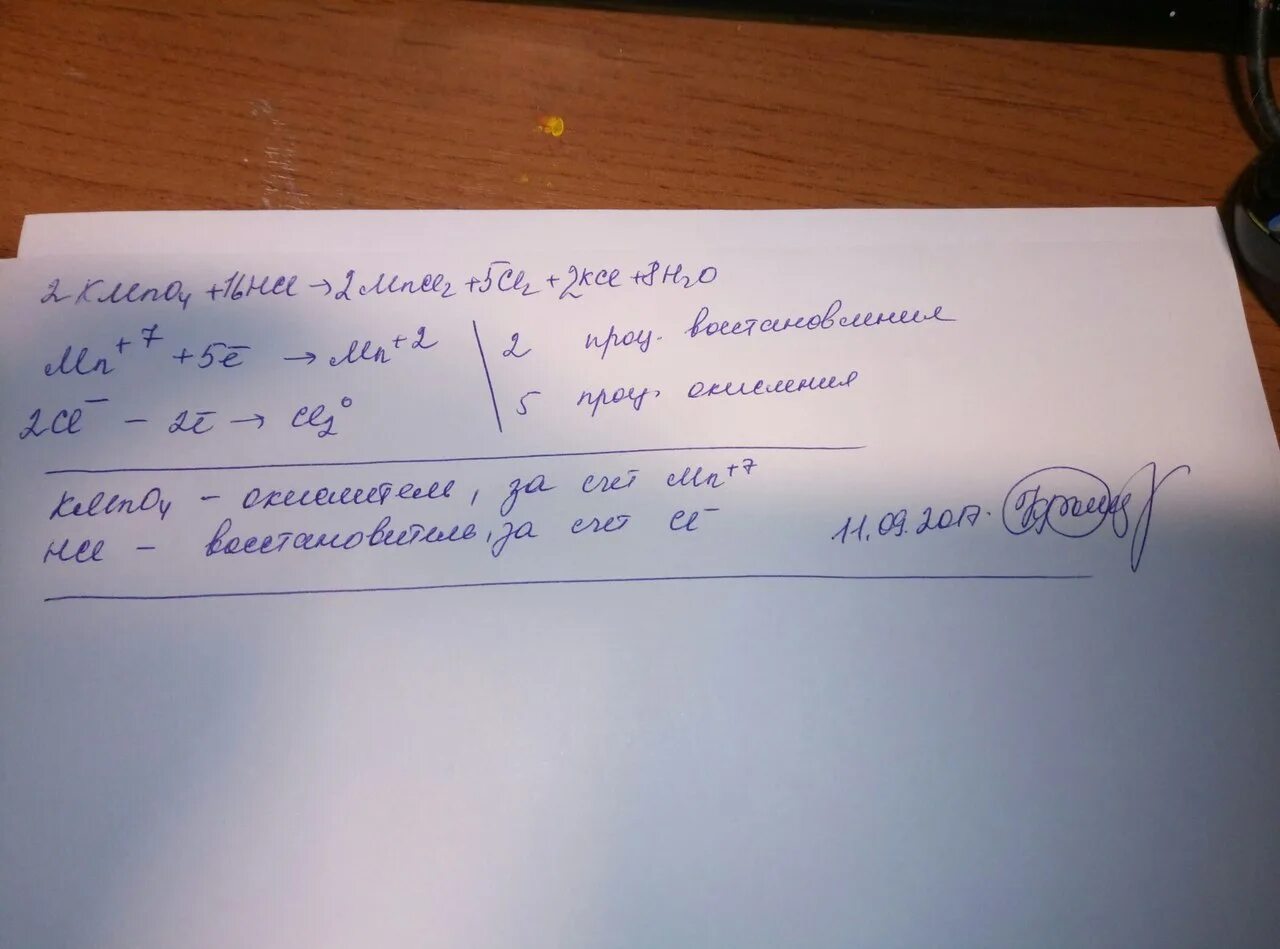 2KMnO₄ + 16HCl → 2MnCl₂ + 5Cl₂ + 2KCl + 8H₂O
Mn⁺⁷ + 5ē → Mn⁺² | 2 проц. восстановления
2Cl⁻ – 2ē → Cl₂⁰ | 5 проц. окисления
KMnO₄ – окислитель, за счёт Mn⁺⁷
HCl – восстановитель, за счет Cl⁻
11.09.2017.